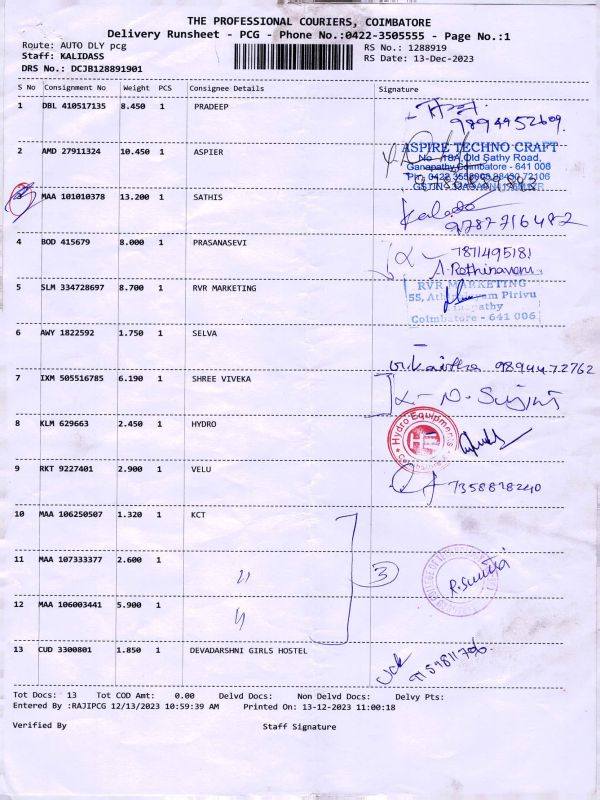 THE PROFESSIONAL COURIERS, COIMBATORE
Delivery Runsheet - PCG - Phone No.:0422-3505555 - Page No.:1
Route: AUTO DLY pcg
RS No.: 1288919
Staff: KALIDASS
RS Date: 13-Dec-2023
DRS No.: DCJB128891901
S No Consignment No Weight PCS Consignee Details Signature
1 DBL 410517135 8.450 1 PRADEEP
9894452609.
2 AMD 27911324 10.450 1 ASPIER
ASPIRE TECHNO CRAFT
No. 18A, Old Sathy Road,
Ganapathy Coimbatore - 641 006
3 MAA 101010378 13.200 1 SATHIS
9787716482
4 BOD 415679 8.000 1 PRASANASEVI
7871495181
5 SLM 334728697 8.700 1 RVR MARKETING
RVR MARKETING
55, Pirivu
Coimbatore - 641 006
6 AWY 1822592 1.750 1 SELVA
9894472762
7 IXM 505516785 6.190 1 SHREE VIVEKA
8 KLM 629663 2.450 1 HYDRO
Hydro Equipments
Coimbatore
9 RKT 9227401 2.900 1 VELU
7358828240
10 MAA 106250507 1.320 1 KCT
11 MAA 107333377 2.600 1 "
3
12 MAA 106003441 5.900 1 "
13 CUD 3300801 1.850 1 DEVADARSHNI GIRLS HOSTEL
Tot Docs: 13 Tot COD Amt: 0.00 Delvd Docs: Non Delvd Docs: Delvy Pts:
Entered By :RAJIPCG 12/13/2023 10:59:39 AM Printed On: 13-12-2023 11:00:18
Verified By Staff Signature